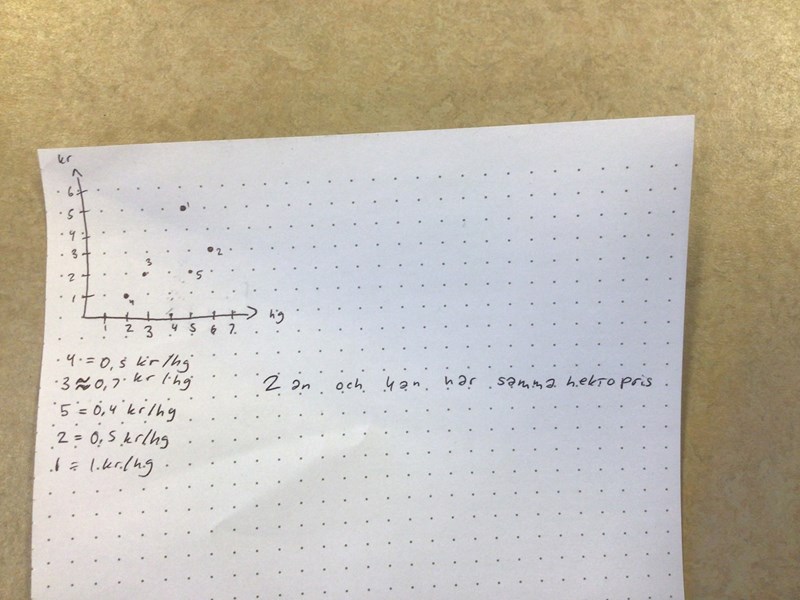 kr
6
5
4
3
2
1
1
2
3
5
4
1 2 3 4 5 6 7
hg
4 = 0,5 kr/hg
3 ≈ 0,7 kr/hg
5 = 0,4 kr/hg
2 = 0,5 kr/hg
1 = 1 kr/hg
2 an och 4an har samma hektopris